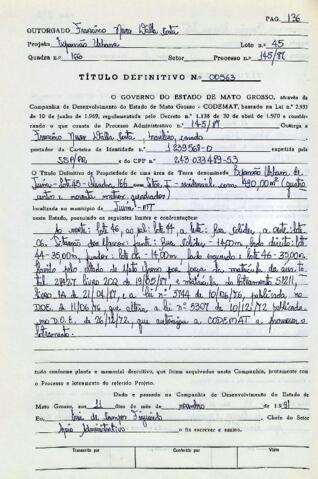 PAG. 136
OUTORGADO Francisco
Projeto Expansão Urbana Lote nº 45
Quadra nº 166 Setor Processo nº 145/87
TÍTULO DEFINITIVO Nº 00563
O GOVERNO DO ESTADO DE MATO GROSSO, através da
Companhia de Desenvolvimento do Estado de Mato Grosso - CODEMAT, baseado na Lei nº 2.931
de 10 de junho de 1.969, regulamentada pelo Decreto nº 1.138 de 30 de abril de 1.970 e conside-
rando o que consta do Processo Administrativo nº 145/87 Outorga a
Francisco brasileiro, casado
portador da Carteira de Identidade nº 1239568-0 expedida pela
SSP/PR e do CPF nº 243 033 489-53
O Título Definitivo de Propriedade de uma área de Terra denominada Expansão Urbana de
Juína - Lote 45 - Quadra 166 - residencial com 490,00 m² (quatro
centos e noventa metros quadrados)
localizada no município de Juína - MT
neste Estado, possuindo os seguintes limites e confrontações:
Ao norte: lote 46, ao sul: lote 44, a leste: Rua a oeste: lote
06. frente: Rua - 14,00m, lado direito: lote
44 - 35,00m, fundos: lote 06 - 14,00m lado esquerdo: lote 46 - 35,00m
pelo Estado de Mato Grosso por força da matrícula
livro 2 de 19/05/87, e matrícula do loteamento
livro de 21/04/87, e a lei nº 3744 de 10/06/76, publicada no
D.O.E. de 11/06/76 que altera a lei nº 3307 de 10/12/72 publicada
no D.O.E. de 26/12/72, que autorizou a CODEMAT a promover o
loteamento.
tudo conforme planta e memorial descritivo, que ficam arquivados nesta Companhia, juntamente com
o Processo e loteamento do referido Projeto.
Dado e passado na Companhia de Desenvolvimento do Estado de
Mato Grosso, aos 11 dias do mês de de 1.991
Eu, Chefe do Setor
Apoio Administrativo o fiz escrever e assino.
Transcrito por Conferido por Visto